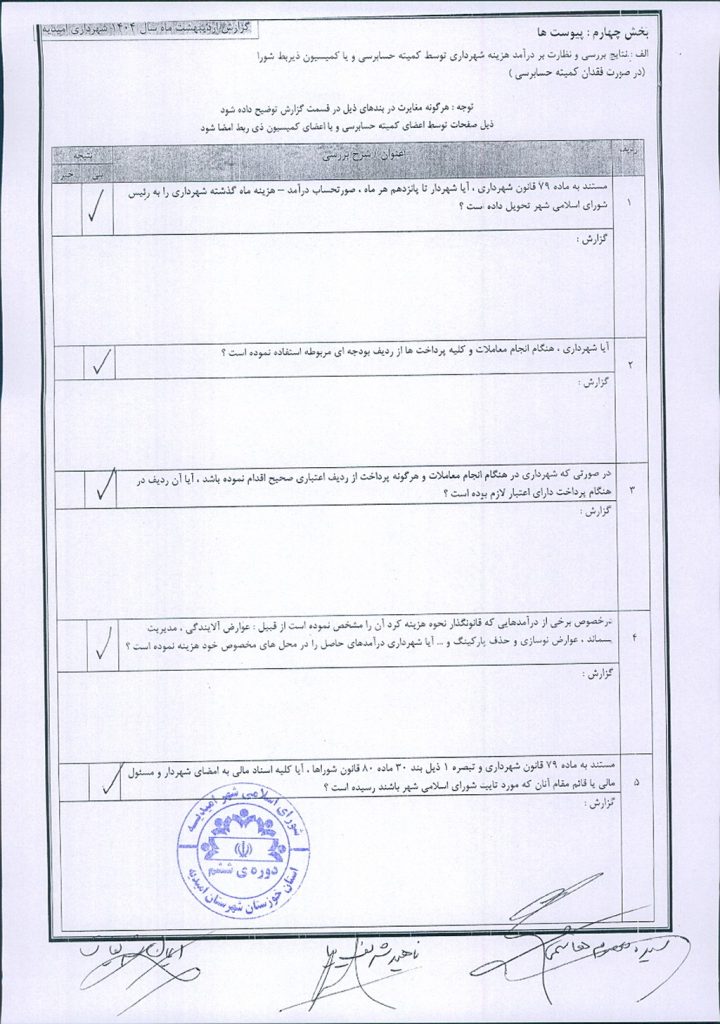 گزارش اردیبهشت ماه سال ۱۴۰۴ شهرداری امیدیه
بخش چهارم : پیوست ها
الف : نتایج بررسی و نظارت بر درآمد هزینه شهرداری توسط کمیته حسابرسی و یا کمیسیون ذیربط شورا
(در صورت فقدان کمیته حسابرسی )
توجه : هرگونه مغایرت در بندهای ذیل در قسمت گزارش توضیح داده شود
ذیل صفحات توسط اعضای کمیته حسابرسی و یا اعضای کمیسیون ذی ربط امضا شود
ردیف
عنوان / شرح بررسی
نتیجه
بلی
خیر
۱
مستند به ماده ۷۹ قانون شهرداری ، آیا شهردار تا پانزدهم هر ماه ، صورتحساب درآمد – هزینه ماه گذشته شهرداری را به رئیس
شورای اسلامی شهر تحویل داده است ؟
گزارش :
۲
آیا شهرداری ، هنگام انجام معاملات و کلیه پرداخت ها از ردیف بودجه ای مربوطه استفاده نموده است ؟
گزارش :
۳
در صورتی که شهرداری در هنگام انجام معاملات و هرگونه پرداخت از ردیف اعتباری صحیح اقدام نموده باشد ، آیا آن ردیف در
هنگام پرداخت دارای اعتبار لازم بوده است ؟
گزارش :
۴
درخصوص برخی از درآمدهایی که قانونگذار نحوه هزینه کرد آن را مشخص نموده است از قبیل : عوارض آلایندگی ، مدیریت
پسماند ، عوارض نوسازی و حذف پارکینگ و ... آیا شهرداری درآمدهای حاصل را در محل های مخصوص خود هزینه نموده است ؟
گزارش :
۵
مستند به ماده ۷۹ قانون شهرداری و تبصره ۱ ذیل بند ۳۰ ماده ۸۰ قانون شوراها ، آیا کلیه اسناد مالی به امضای شهردار و مسئول
مالی یا قائم مقام آنان که مورد تایید شورای اسلامی شهر باشند رسیده است ؟
گزارش :
شورای اسلامی شهر امیدیه
دوره ی ششم
استان خوزستان شهرستان امیدیه
سیده معصومه هاشمی
ناهید شریفی نیا